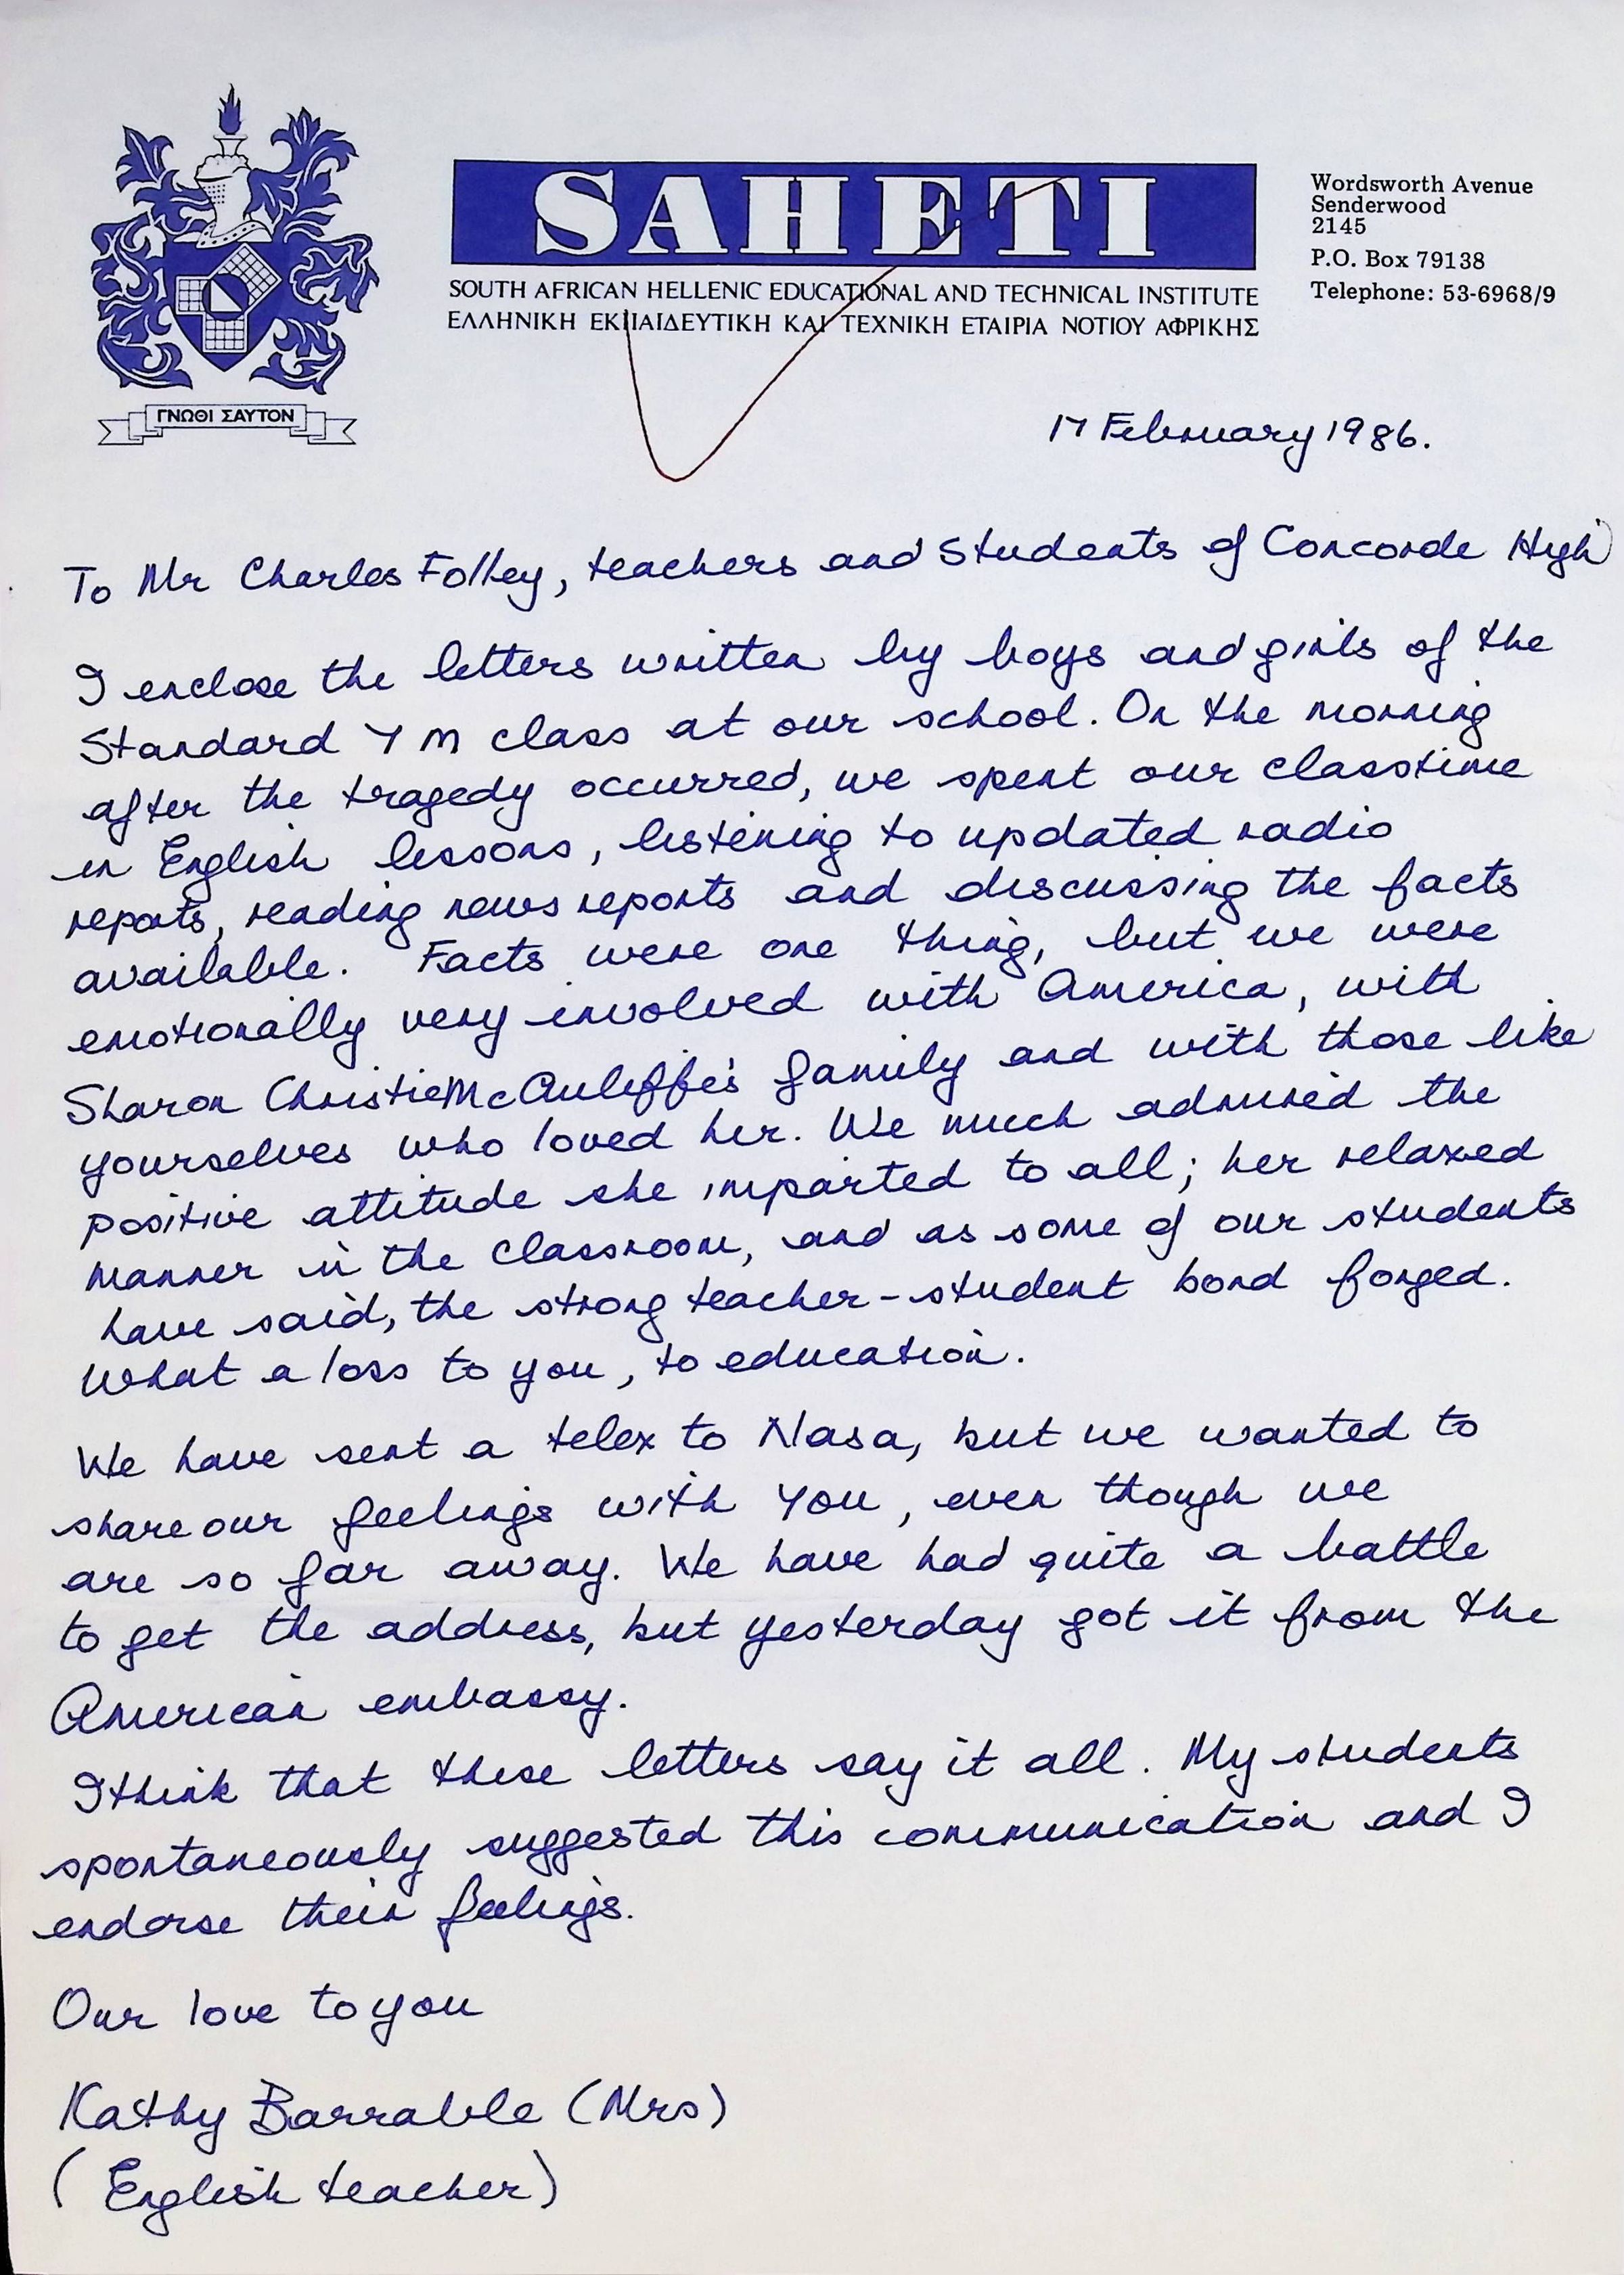 SAHETI
SOUTH AFRICAN HELLENIC EDUCATIONAL AND TECHNICAL INSTITUTE
ΕΛΛΗΝΙΚΗ ΕΚΠΑΙΔΕΥΤΙΚΗ ΚΑΙ ΤΕΧΝΙΚΗ ΕΤΑΙΡΙΑ ΝΟΤΙΟΥ ΑΦΡΙΚΗΣ
Wordsworth Avenue
Senderwood
2145
P.O. Box 79138
Telephone: 53-6968/9
ΓΝΩΘΙ ΣΑΥΤΟΝ
17 February 1986.
To Mr Charles Folley, teachers and Students of Concorde High
I enclose the letters written by boys and girls of the
Standard 7 M class at our school. On the morning
after the tragedy occurred, we spent our classtime
in English lessons, listening to updated radio
reports, reading news reports and discussing the facts
available. Facts were one thing, but we were
emotionally very involved with America, with
Sharon Christie McAuliffe's family and with those like
yourselves who loved her. We much admired the
positive attitude she imparted to all; her relaxed
manner in the classroom, and as some of our students
have said, the strong teacher-student bond forged.
What a loss to you, to education.
We have sent a telex to Nasa, but we wanted to
share our feelings with you, even though we
are so far away. We have had quite a battle
to get the address, but yesterday got it from the
American embassy.
I think that these letters say it all. My students
spontaneously suggested this communication and I
endorse their feelings.
Our love to you
Kathy Barrable (Mrs)
(English teacher)